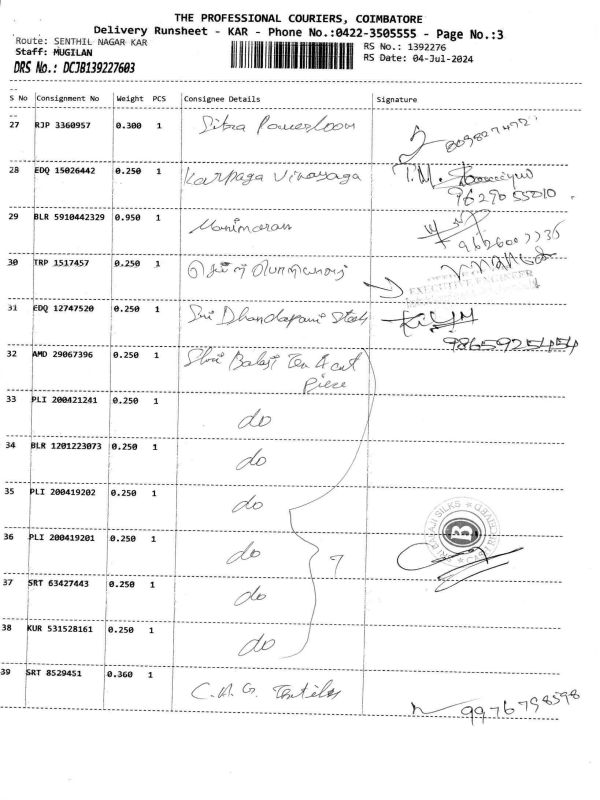 THE PROFESSIONAL COURIERS, COIMBATORE
Delivery Runsheet - KAR - Phone No.:0422-3505555 - Page No.:3
Route: SENTHIL NAGAR KAR
RS No.: 1392276
Staff: MUGILAN
RS Date: 04-Jul-2024
DRS No.: DCJB139227603
S No Consignment No Weight PCS Consignee Details Signature
27 RJP 3360957 0.300 1 Sitra Powerloom
28 EDQ 15026442 0.250 1 Karpaga Vinayaga T.M.
9629055010
29 BLR 5910442329 0.950 1 Manimaran
30 TRP 1517457 0.250 1
EXECUTIVE ENGINEER
31 EDQ 12747520 0.250 1 Sri Dhandapani
9865925454
32 AMD 29067396 0.250 1 Shri Balaji Tex & cut
piece
33 PLI 200421241 0.250 1 do
34 BLR 1201223073 0.250 1 do
35 PLI 200419202 0.250 1 do
36 PLI 200419201 0.250 1 do 7
37 SRT 63427443 0.250 1 do
38 KUR 531528161 0.250 1 do
39 SRT 8529451 0.360 1 C.A.G. Textiles
9976798598